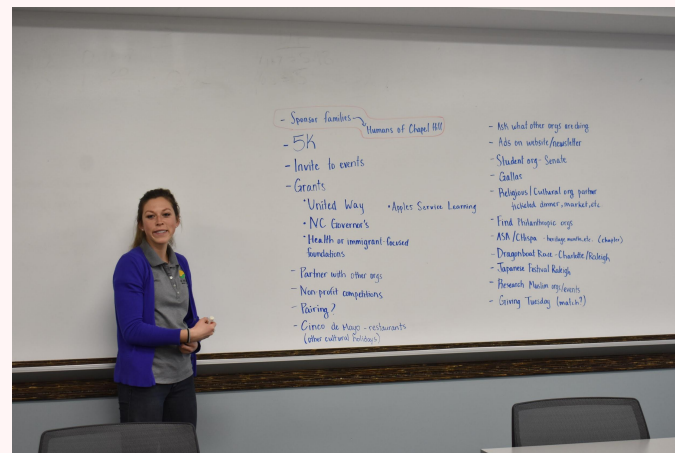 - Sponsor families
Humans of Chapel Hill
- 5K
- Invite to events
- Grants
• United Way • Apples Service Learning
• NC Governor's
• Health or immigrant-focused
foundations
- Partner with other orgs
- Non-profit competitions
- Pairing?
- Cinco de Mayo - restaurants
(other cultural holidays)
- Ask what other orgs are doing
- Ads on website/newsletter
- Student org - Senate
- Gallas
- Religious/Cultural org partner
ticketed dinner, market, etc
- Find Philanthropic orgs
- ASA/CHispa - heritage months, etc. (chapter)
- Dragonboat Race - Charlotte/Raleigh
- Japanese Festival Raleigh
- Research Muslim orgs/events
- Giving Tuesday (match?)